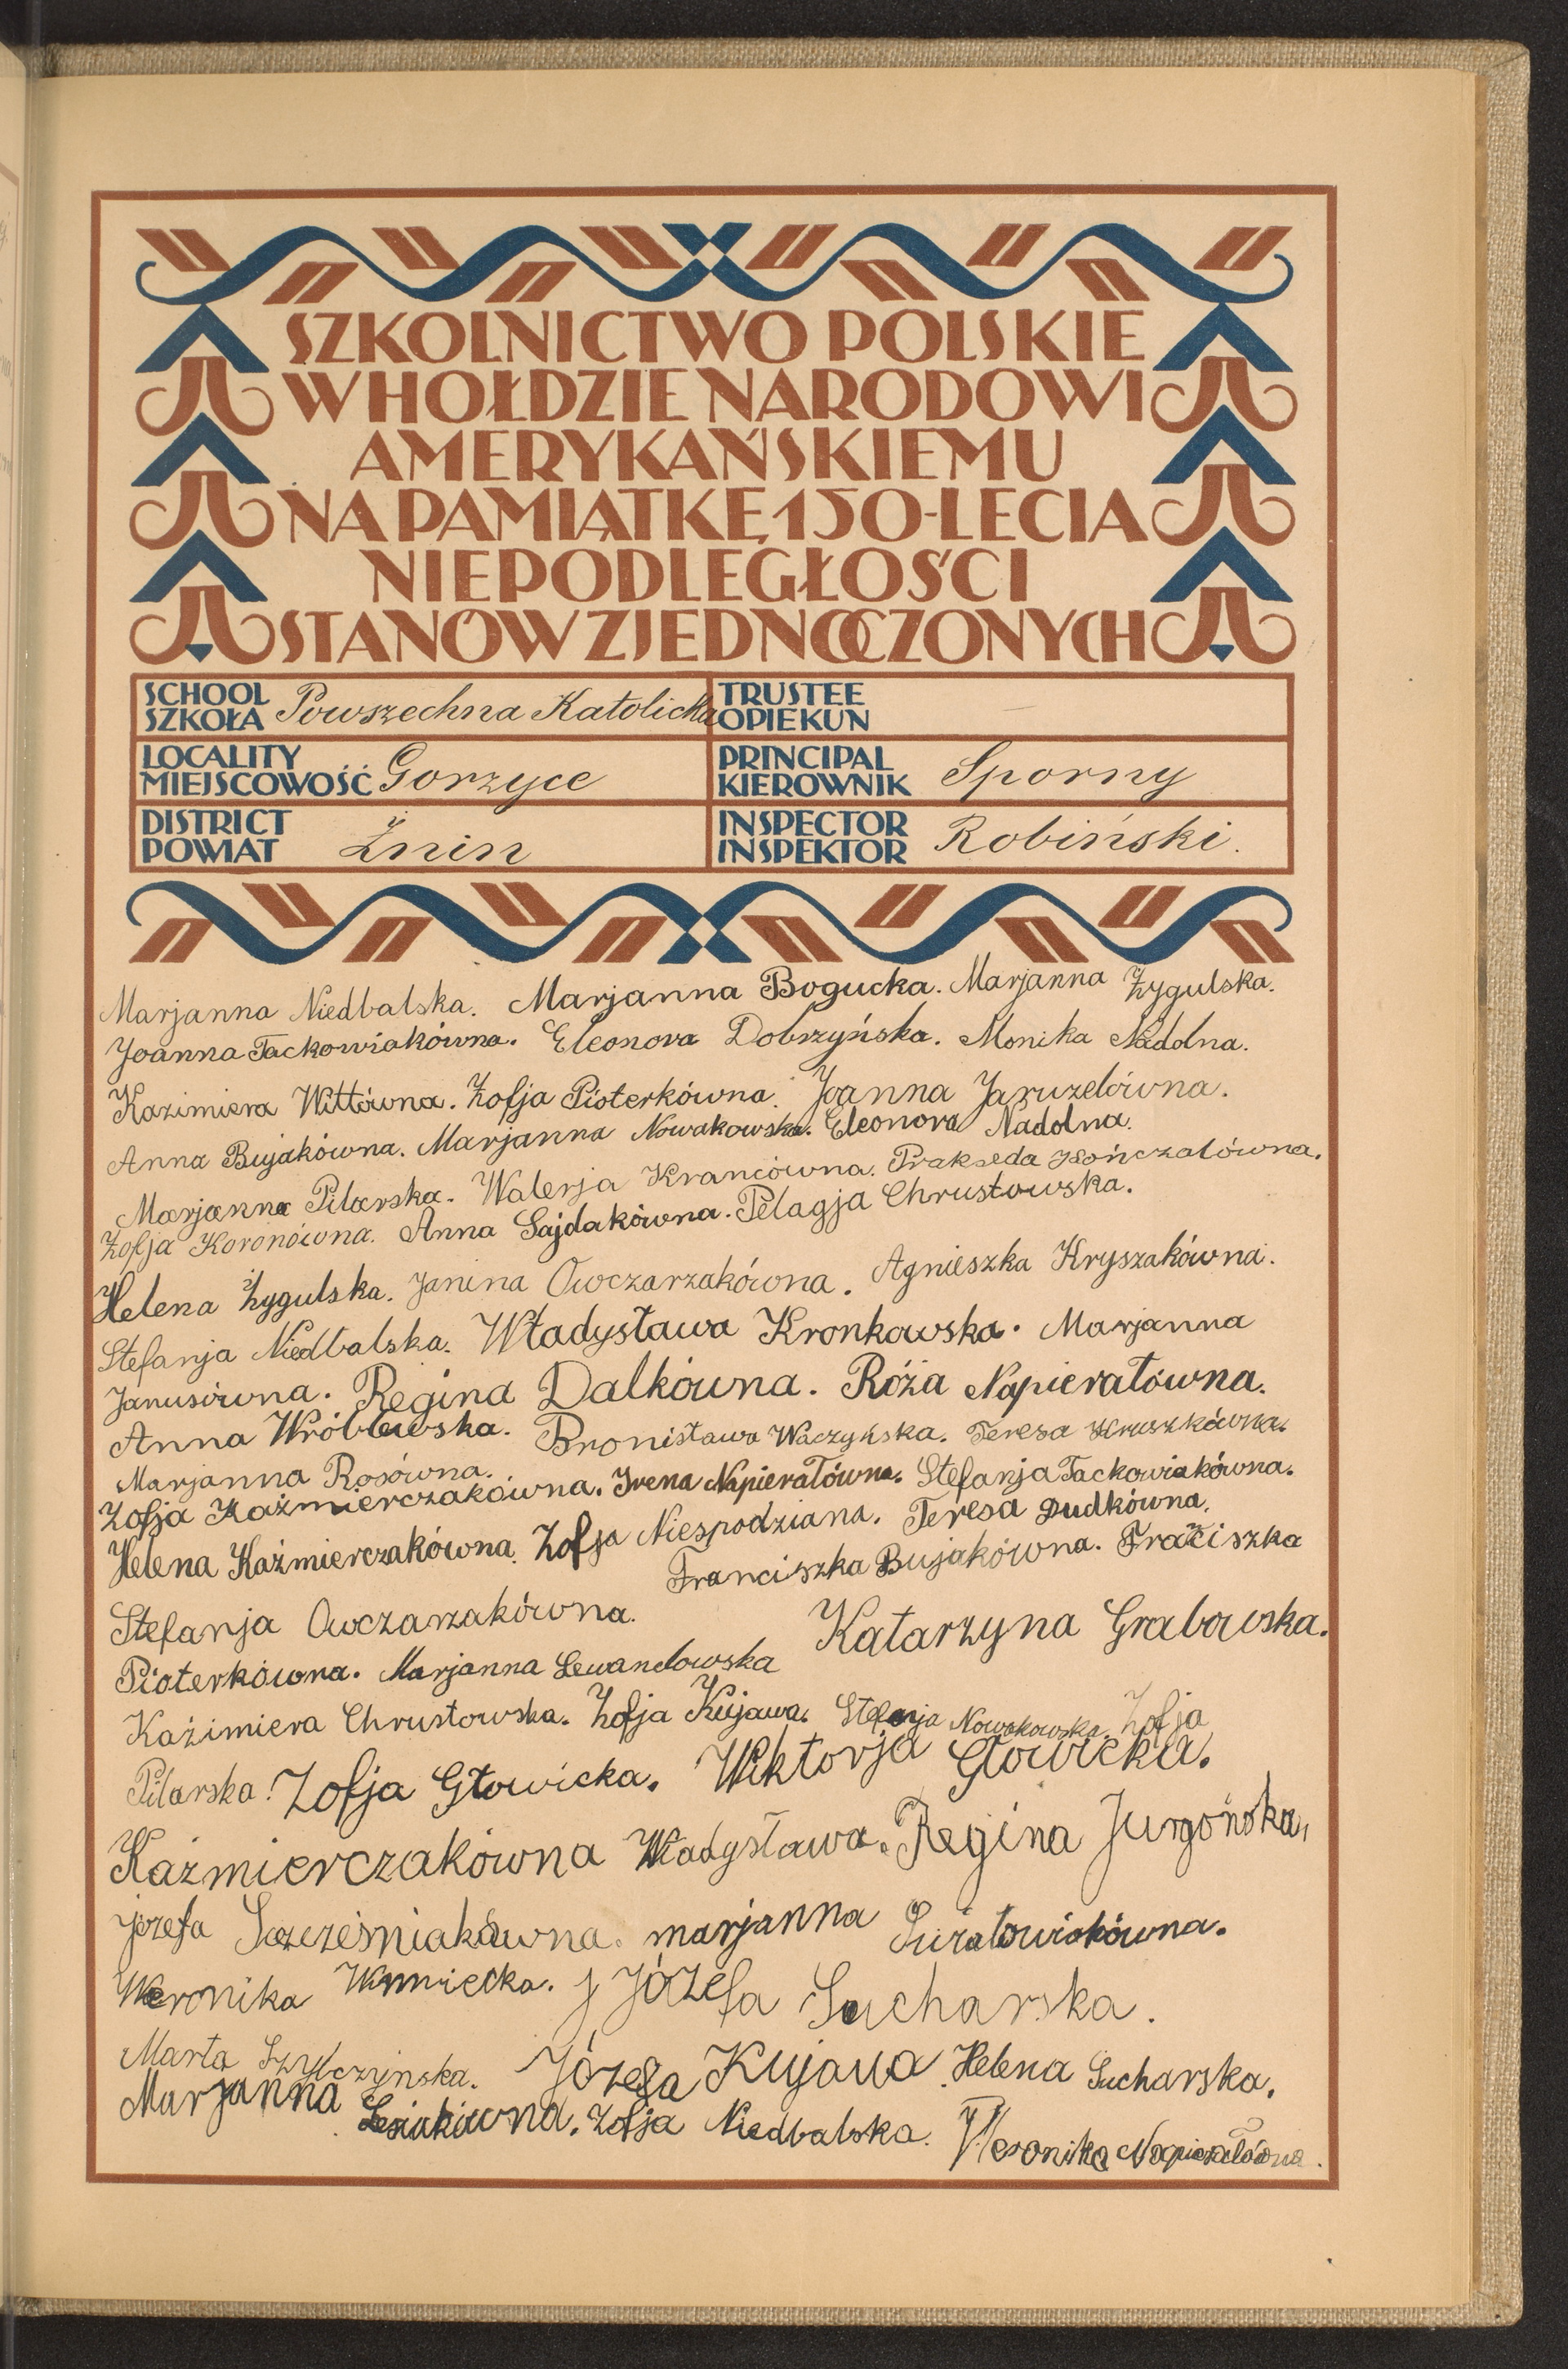 SZKOLNICTWO POLSKIE
W HOŁDZIE NARODOWI
AMERYKAŃSKIEMU
NA PAMIĄTKĘ 150-LECIA
NIEPODLEGŁOŚCI
STANÓW ZJEDNOCZONYCH
SCHOOL
SZKOŁA Powszechna Katolicka
TRUSTEE
OPIEKUN —
LOCALITY
MIEJSCOWOŚĆ Gorzyce
PRINCIPAL
KIEROWNIK Sporny
DISTRICT
POWIAT Żnin
INSPECTOR
INSPEKTOR Robiński.
Marjanna Niedbalska. Marjanna Bogucka. Marjanna Żygulska.
Joanna Tackowiakówna. Eleonora Dobrzyńska. Monika Nadolna.
Kazimiera Wittówna. Zofja Pioterkówna. Joanna Jaruzelówna.
Anna Bujakówna. Marjanna Nowakowska. Eleonora Nadolna.
Marjanna Pilarska. Walerja Krancówna. Prakseda Kończalówna.
Zofja Koronówna. Anna Sajdakówna. Pelagja Chrustowska.
Helena Żygulska. Janina Owczarzakówna. Agnieszka Kryszakówna.
Stefanja Niedbalska. Władysława Kronkowska. Marjanna
Janusówna. Regina Dalkówna. Róża Napierałówna.
Anna Wróblewska. Bronisława Waczyńska. Teresa Kruszkówna.
Marjanna Rosówna.
Zofja Kaźmierczakówna. Irena Napierałówna. Stefanja Tackowiakówna.
Helena Kaźmierczakówna. Zofja Niespodziana. Teresa Dudkówna.
Franciszka Bujakówna. Fraciszka
Stefanja Owczarzakówna.
Katarzyna Grabowska.
Pioterkówna. Marjanna Lewandowska
Kazimiera Chrustowska. Zofja Kujawa. Stefanja Nowakowska. Zofja
Pilarska. Zofja Głowicka. Wiktorja Głowicka.
Kaźmierczakówna Władysława. Regina Jurgońska,
Józefa Szcześniakówna. marjanna
Weronika Józefa Sucharska.
Marta Józefa Kujawa. Helena Sucharska.
Marjanna Lesiakówna. Zofja Niedbalska. Weronika Napierałówna.